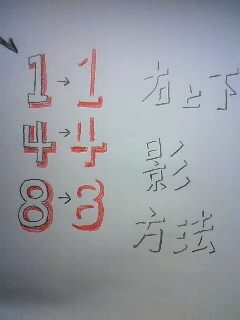 1→1
4→4
8→8
右と下
影
方法